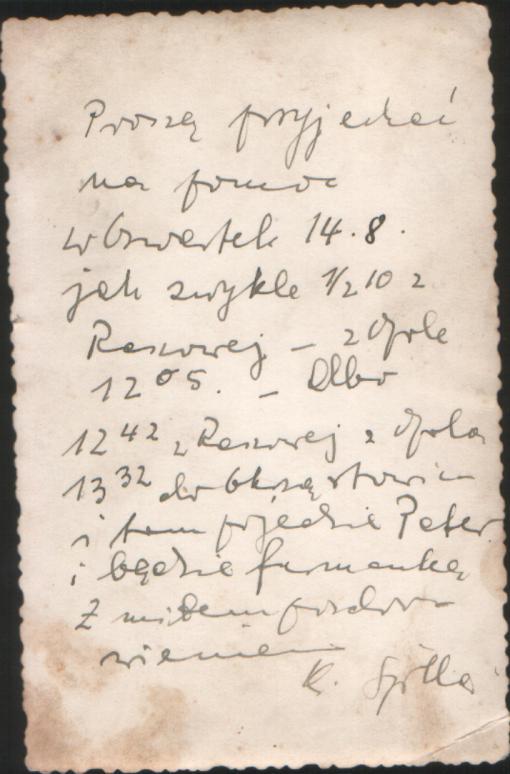 Proszę przyjechać
na pomoc
w Czwartek 14.8.
jak zwykle 1/2 10 z
Raszowej – z Opole
12 05. – Albo
12 42 z Raszowej z Opola
13 32 do
i tam przjedzie Peter
i będzie furmanką
Z miłem pozdro
wieniem
K.